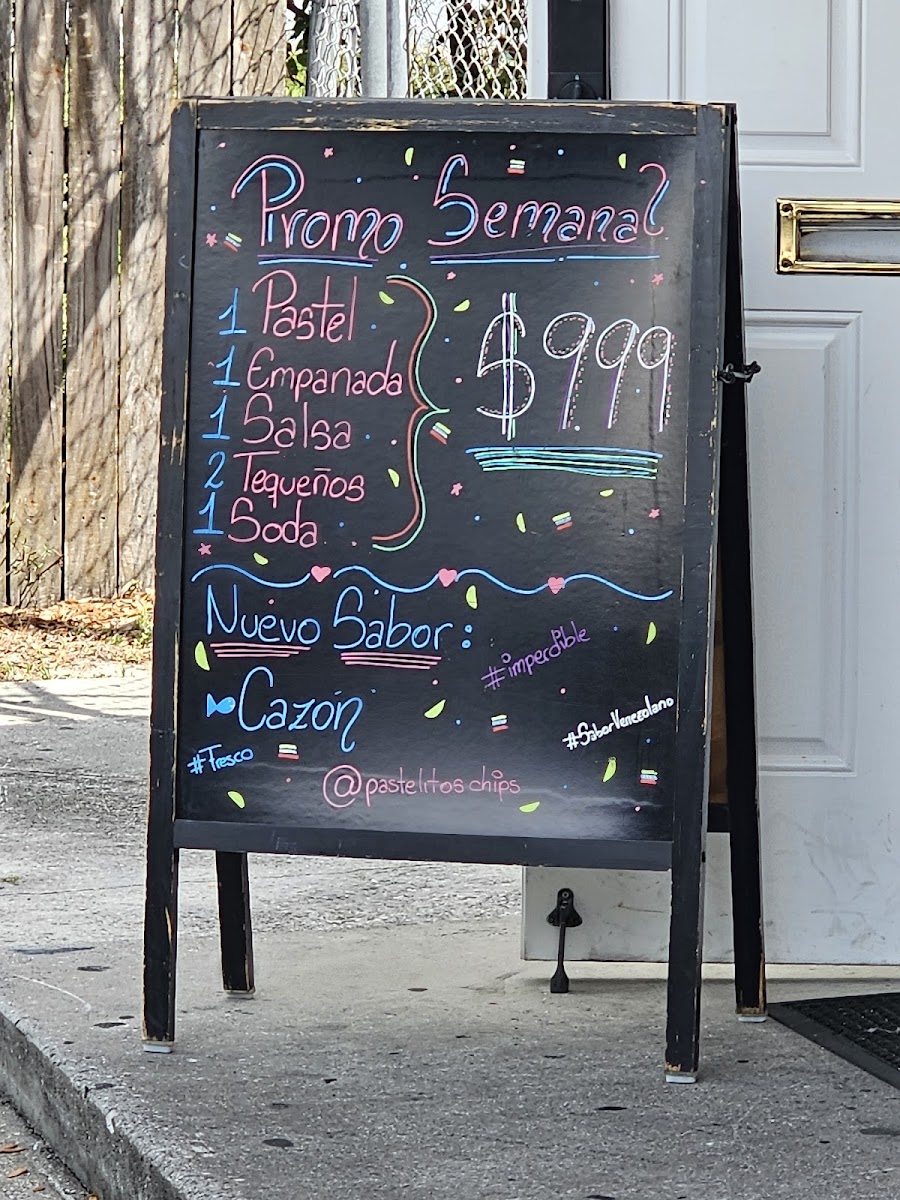 Promo Semanal
1 Pastel
1 Empanada
1 Salsa
2 Tequeños
1 Soda
$999
Nuevo Sabor:
Cazón
#imperdible
#SaborVenezolano
#Fresco
@pastelitos chips